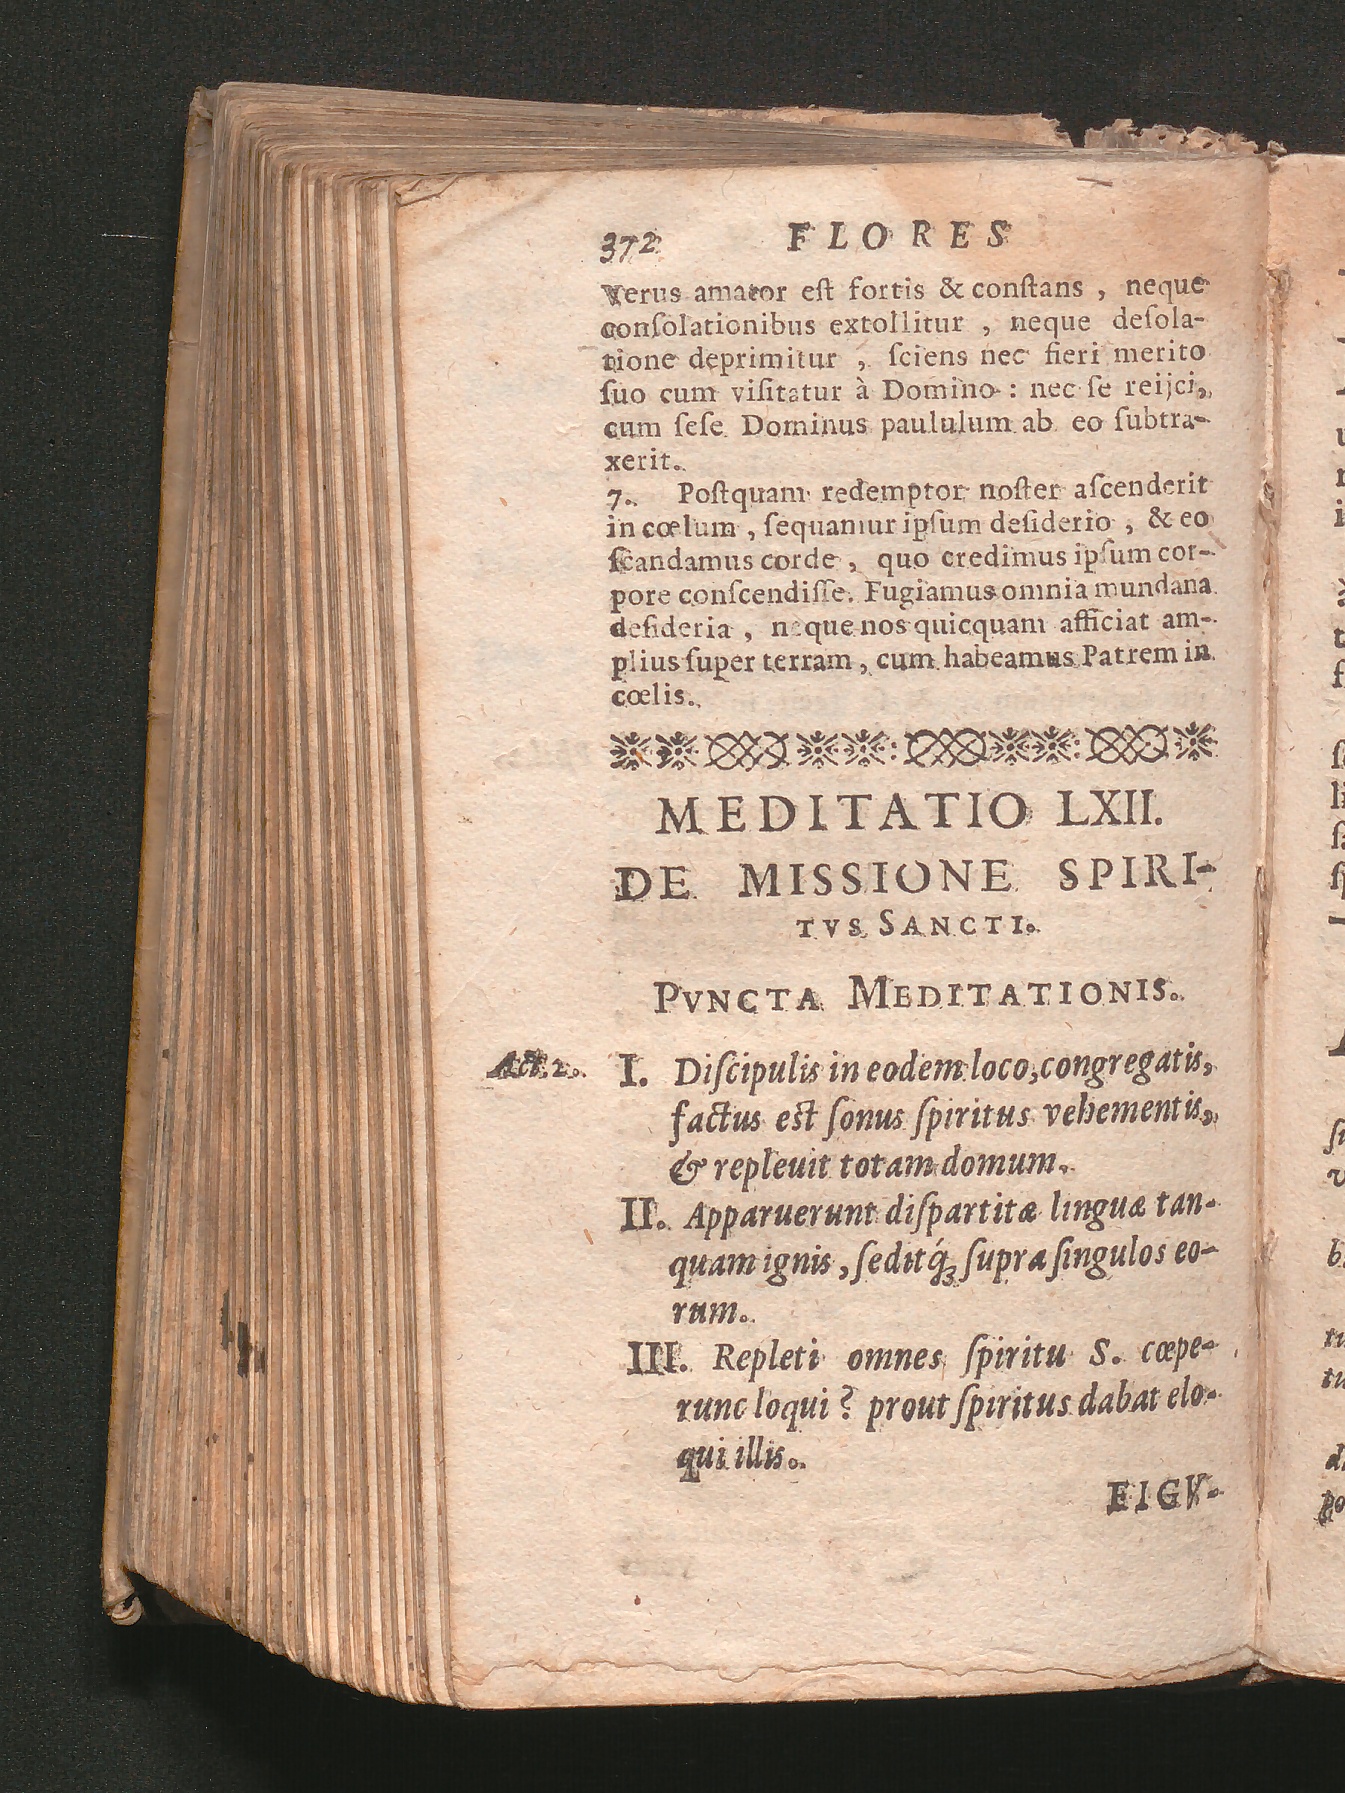 372 FLORES
verus amator eſt fortis & conſtans, neque
conſolationibus extollitur, neque deſola-
tione deprimitur, ſciens nec fieri merito
ſuo cum viſitatur à Domino: nec ſe reijci,
cum ſeſe Dominus paululum ab eo ſubtra-
xerit.
7. Poſtquam redemptor noſter aſcenderit
in cœlum, ſequamur ipſum deſiderio, & eo
ſcandamus corde, quo credimus ipſum cor-
pore conſcendiſſe. Fugiamus omnia mundana
deſideria, neque nos quicquam afficiat am-
plius ſuper terram, cum habeamus Patrem in
cœlis.
MEDITATIO LXII.
DE MISSIONE SPIRI-
TVS SANCTI.
PVNCTA MEDITATIONIS.
Act. 2. I. Diſcipulis in eodem loco, congregatis,
factus eſt ſonus ſpiritus vehementis,
& repleuit totam domum.
II. Apparuerunt diſpartitæ linguæ tan-
quam ignis, ſeditq́ꝫ ſupra ſingulos eo-
rum.
III. Repleti omnes ſpiritu S. cœpe-
runc loqui? prout ſpiritus dabat elo-
qui illis.
FIGV-